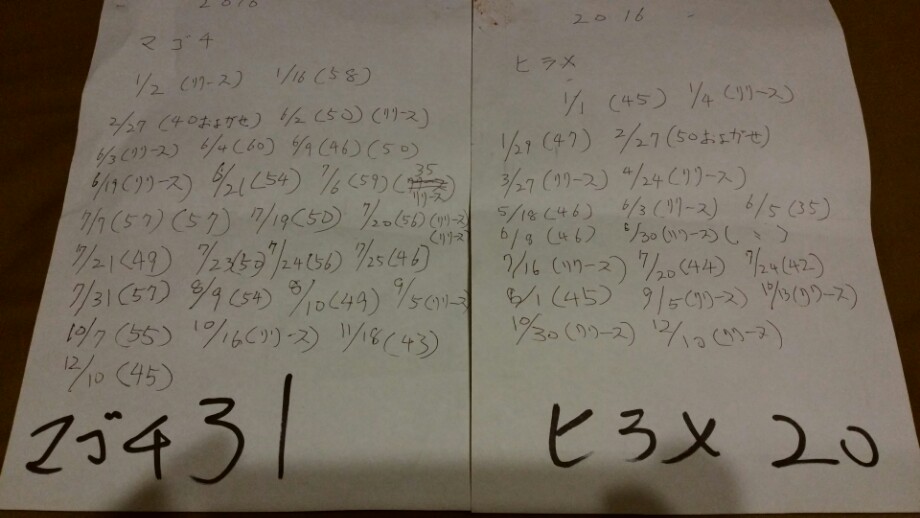 2016
マゴチ
1/2 (リリース) 1/16 (58)
2/27 (40およがせ) 6/2 (50) (リリース)
6/3 (リリース) 6/4 (60) 6/9 (46) (50)
6/19 (リリース) 6/21 (54) 7/6 (59) (35 リリース)
7/7 (57) (57) 7/19 (50) 7/20 (56) (リリース)
(リリース
7/21 (49) 7/23 (50) 7/24 (56) 7/25 (46)
7/31 (57) 8/9 (54) 8/10 (49) 9/5 (リリース)
10/7 (55) 10/16 (リリース) 11/18 (43)
12/10 (45)
マゴチ 31
2016
ヒラメ
1/1 (45) 1/4 (リリース)
1/29 (47) 2/27 (50およがせ)
3/27 (リリース) 4/24 (リリース)
5/18 (46) 6/3 (リリース) 6/5 (35)
6/8 (46) 6/30 (リリース) (〃)
7/16 (リリース) 7/20 (44) 7/24 (42)
8/1 (45) 9/5 (リリース) 10/13 (リリース)
10/30 (リリース) 12/10 (リリース)
ヒラメ 20